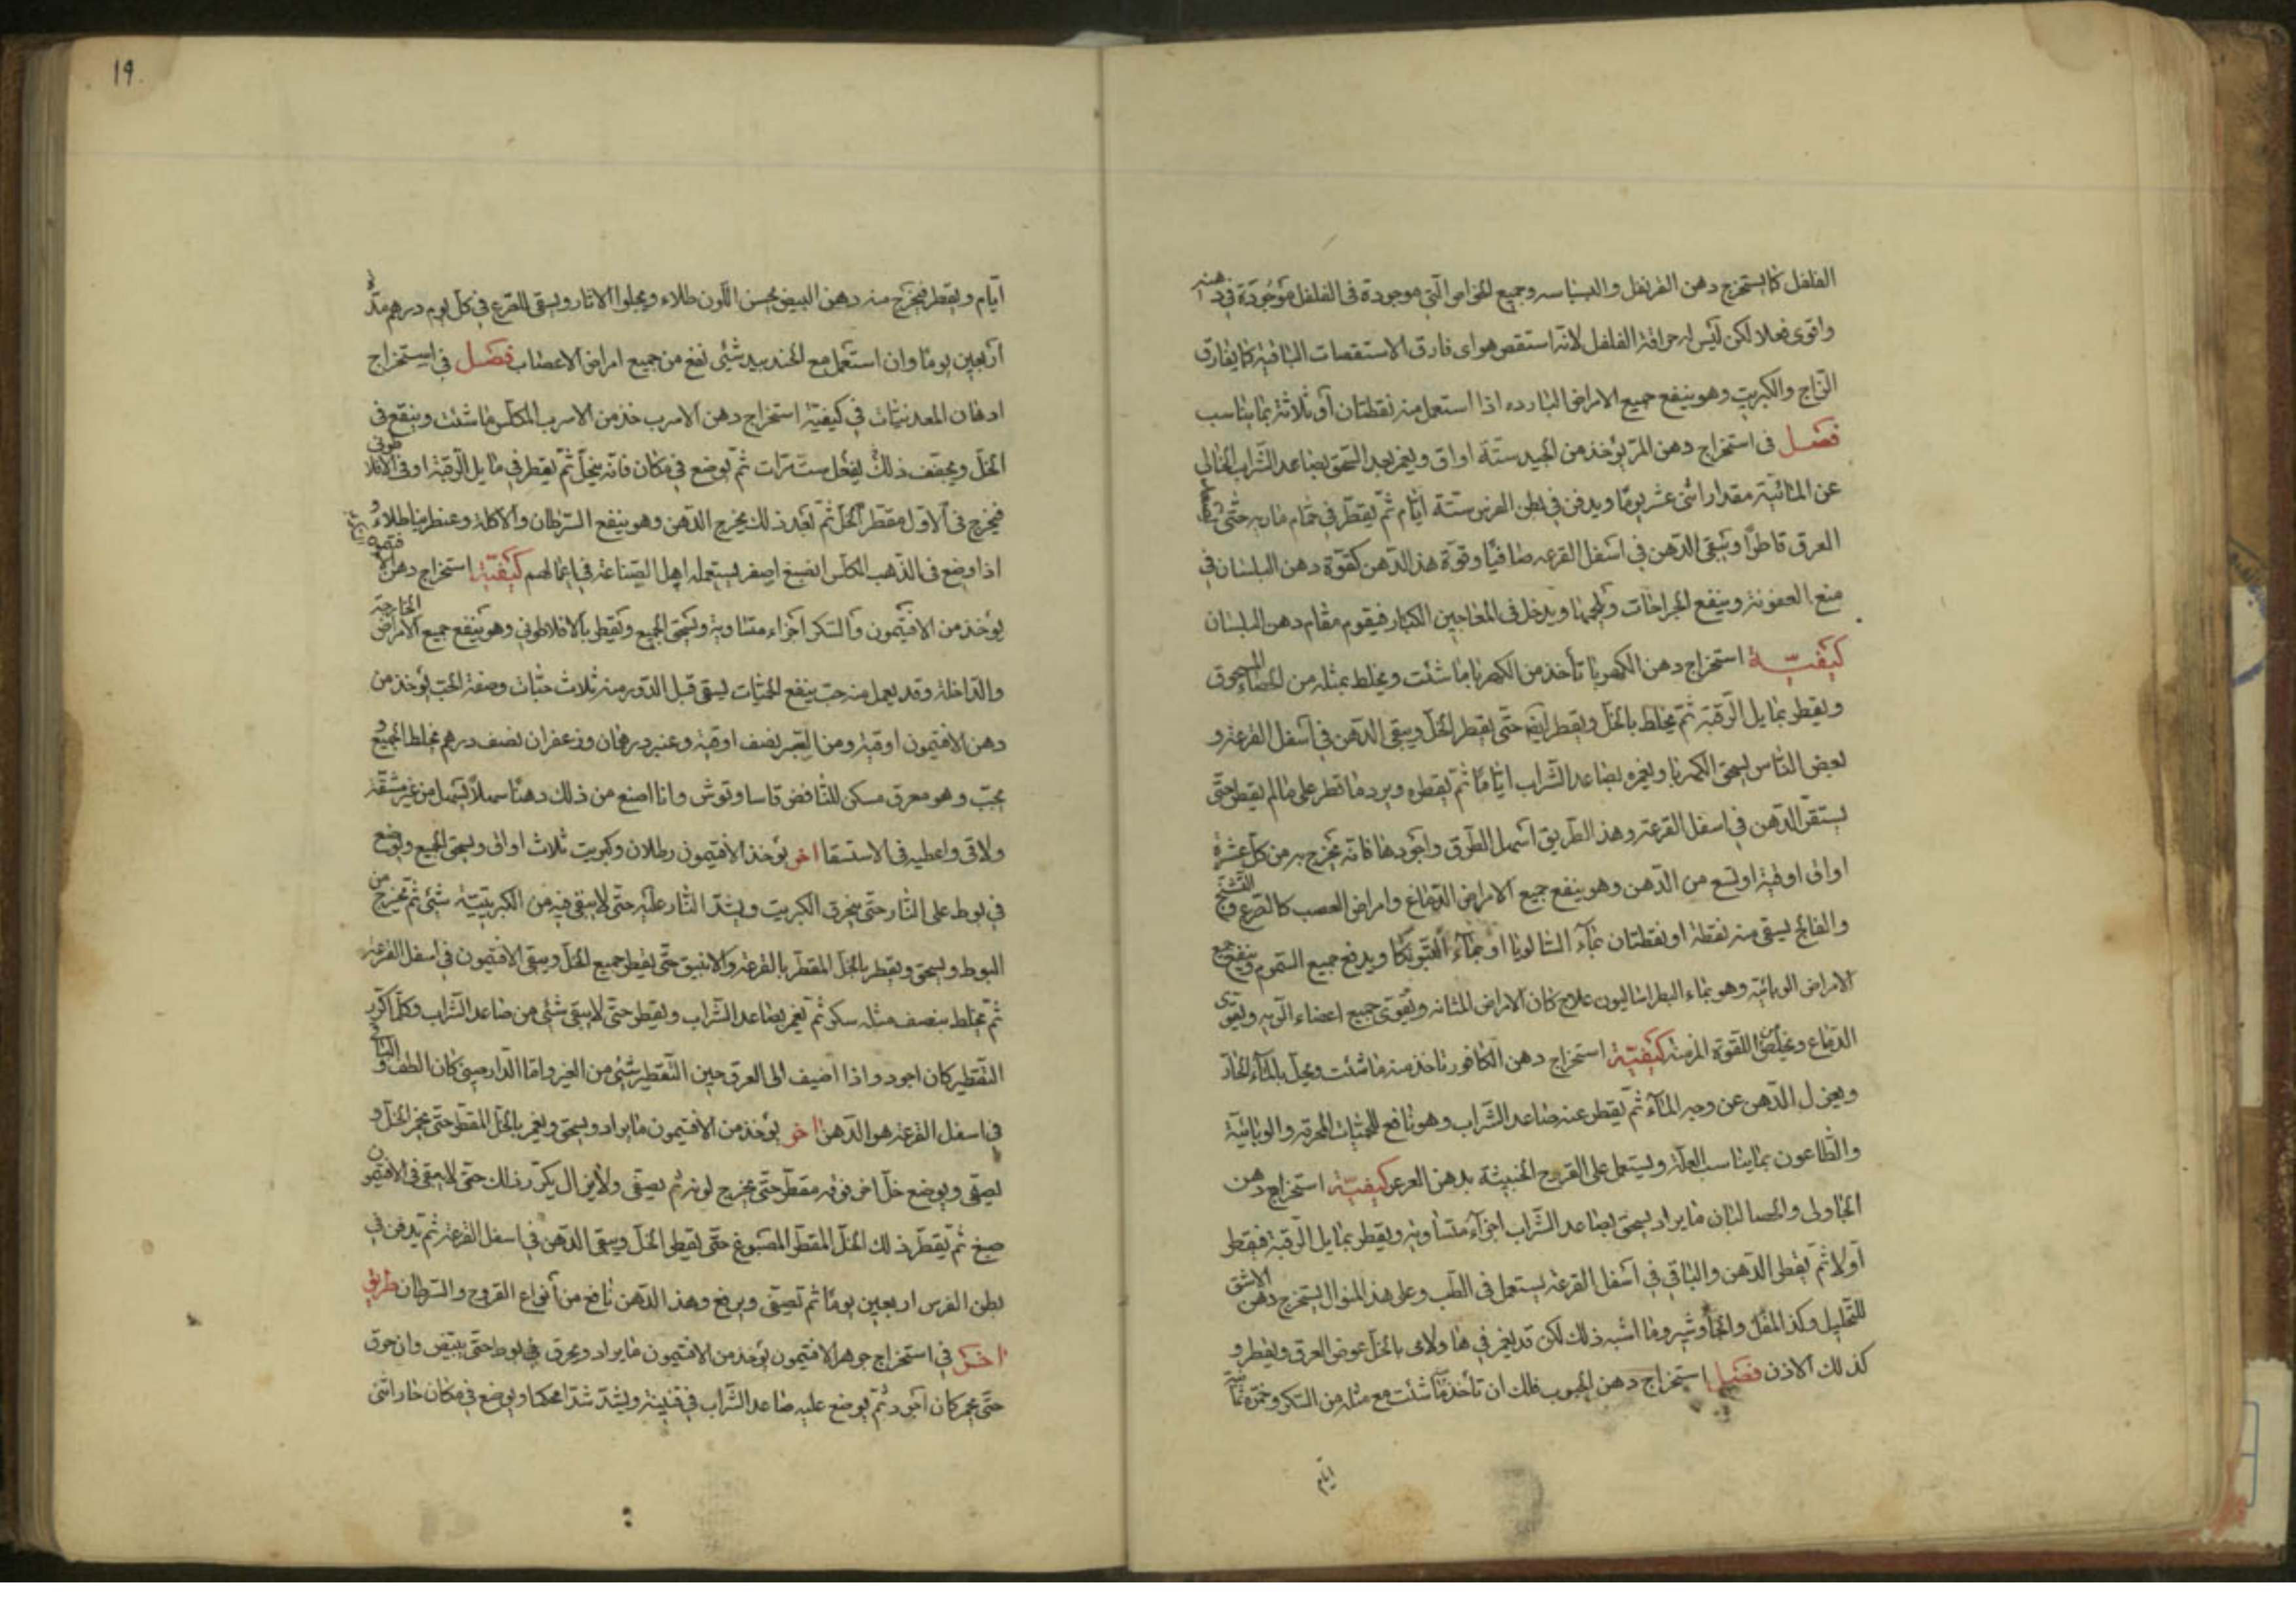 الفلفل كما يستخرج دهن القرنفل والبسباسه وجميع الخواص التى موجودة فى الفلفل موجودة فى دهنه
واقوى فعلا لكن ليس له حرافة الفلفل لانه استقص هواى فارق الاستقصات الباقية كما يفارق
الزاج والكبريت وهو ينفع جميع الامراض البارده اذا استعمل منه نقطتان او ثلاثة بما يناسب
فصل فى استخراج دهن المر يؤخذ من الجيد ستة اواق ويغمر بعد السحق بصاعد الشراب الخالى
عن المائية مقدار اثنى عشر يوما ويدفن فى بطن الفرس ستة ايام ثم يقطر فى حمام ماريه حتى
العرق قاطرا ويبقى الدهن فى اسفل القرعه صافيا وقوة هذا الدهن كقوة دهن البلسان فى
منع العفونة وينفع الجراحات ويلحمها ويدخل فى المعاجين الكبار فيقوم مقام دهن البلسان
كيفية استخراج دهن الكهربا تأخذ من الكهربا ما شئت ويخلط بمثله من الحصاء المسحوق
ويقطر بمايل الرقبة ثم يخلط بالخل ويقطر ايضا حتى يقطر الخل ويبقى الدهن فى اسفل القرعة و
بعض الناس يسحق الكهربا ويغمره بصاعد الشراب اياما ثم يقطره ويرد ما قطر على مالم يقطر حتى
يستقر الدهن فى اسفل القرعة وهذا الطريق اسهل الطرق واجودها فانه يخرج به من كل عشرة
اواق اوقية اوتسع من الدهن وهو ينفع جميع الامراض الدماغ وامراض العصب كالصرع والتشنج
والفالج يسقى منه نقطة او نقطتان بماء الشالويا او بماء ويدفع جميع السموم وينفع جميع
الامراض الوبائية وهو بماء البطراساليون علاج كان لامراض المثانه ويقوى جميع اعضاء الوبه ويقوى
الدماغ ويخلص من اللقوة المزمنة كيفية استخراج دهن الكافور تاخذ منه ما شئت ويحل بالماء الحاد
ويعزل الدهن عن وجه الماء ثم يقطر عنه صاعد الشراب وهو نافع للحميات المحرقه والوبائية
والطاعون بما يناسب العلة ويستعمل على القروح الخبيثة بدهن العرعر كيفية استخراج دهن
الجاولى والحصا لبان ما يراد يسحق بصاعد الشراب اجزاء متساوية ويقطر بمايل الرقبة فيقطر
اولا ثم يقطر الدهن والباقى فى اسفل القرعة يستعمل فى الطب وعلى هذا المنوال يستخرج دهن الاشق
للتحليل وكذا المقل والجاوشير وما اشبه ذلك لكن قد يغمر فى هاولاى بالخل عوض العرق ويقطر و
كذلك الاذن فصل استخراج دهن الحبوب فلك ان تأخذ ما شئت مع مثله من السكر وخمره ثمانية
ايام
١٩
ايام ويقطر فيخرج منه دهن البيض يحسن اللون طلاء ويجلوا الاثار ويسقى للقرع فى كل يوم درهم مدة
اربعين يوما وان استعمل مع الجندبيدشتى نفع من جميع امراض الاعصاب فصل فى استخراج
ادهان المعدنيات فى كيفية استخراج دهن الاسرب خذ من الاسرب المكلس ما شئت وينقع فى
الخل ويجفف ذلك يفعل ست مرات ثم يوضع فى مكان فانه ينحل ثم يقطر فى مايل الرقبة او فى الافلاطونى
فيخرج فى الاول مقطر الخل ثم بعد ذلك يخرج الدهن وهو ينفع السرطان والاكلة وعنطرينا طلاء و
اذا وضع فى الذهب المكلس انصبغ اصفر يستعمله اهل الصناعة فى اعمالهم كيفية استخراج دهن
يؤخذ من الافتيمون والسكر اجزاء متساوية ويسحق الجميع ويقطر بالافلاطونى وهو ينفع جميع الامراض الخارجة
والداخلة وقد يعمل منه حب ينفع الحميات يسقى قبل الدور منه ثلاث حبات وصفة الحب يؤخذ من
دهن الافتيمون اوقية ومن الصبر نصف اوقية وعنبر درهمان وزعفران نصف درهم يخلط الجميع و
يحبب وهو معرق مسكن للنافض قاساوتوش وانا اصنع من ذلك دهنا سهلا يسهل من غير مشقة
ولاقى واعطيه فى الاستسقا اخر يؤخذ الافتيمون رطلان وكبريت ثلاث اواق ويسحق الجميع ويوضع
فى بوط على النار حتى يحرق الكبريت ويشد النار عليه حتى لا يبقى فيه من الكبريتية شئ ثم يخرج من
البوط ويسحق ويقطر بالخل المقطر بالقرعة والانبيق حتى يقطر جميع الخل ويبقى الافتيمون فى اسفل القرعة
ثم يخلط بنصف مثله سكر ثم يغمر بصاعد الشراب ويقطر حتى لا يبقى شئ من صاعد الشراب وكلما كرر
التقطير كان اجود واذا اضيف الى العرق حين التقطير شئ من العنبر واما الدارصينى كان الطف والباقى
فى اسفل القرعة هو الدهن اخر يؤخذ من الافتيمون ما يراد ويسحق ويغمر بالخل المقطر حتى يحمر الخل و
يصفى ويوضع خل اخر فوقه مقطر حتى يخرج لونه ثم يصفى ولا يزال يكرر ذلك حتى لا يبقى فى الافتيمون
صبغ ثم يقطر ذلك الخل المقطر المصبوغ حتى يقطر الخل ويبقى الدهن فى اسفل القرعة ثم يدفن فى
بطن الفرس اربعين يوما ثم تصفى ويرفع وهذا الدهن نافع من أنواع القروح والسرطان طريق
اخر فى استخراج جوهر الافتيمون يؤخذ من الافتيمون ما يراد ويحرق فى بوط حتى يبيض وان حرق
حتى يحمر كان اجود ثم يوضع عليه صاعد الشراب فى قنينة ويشد شدا محكما ويوضع فى مكان حار اثنى